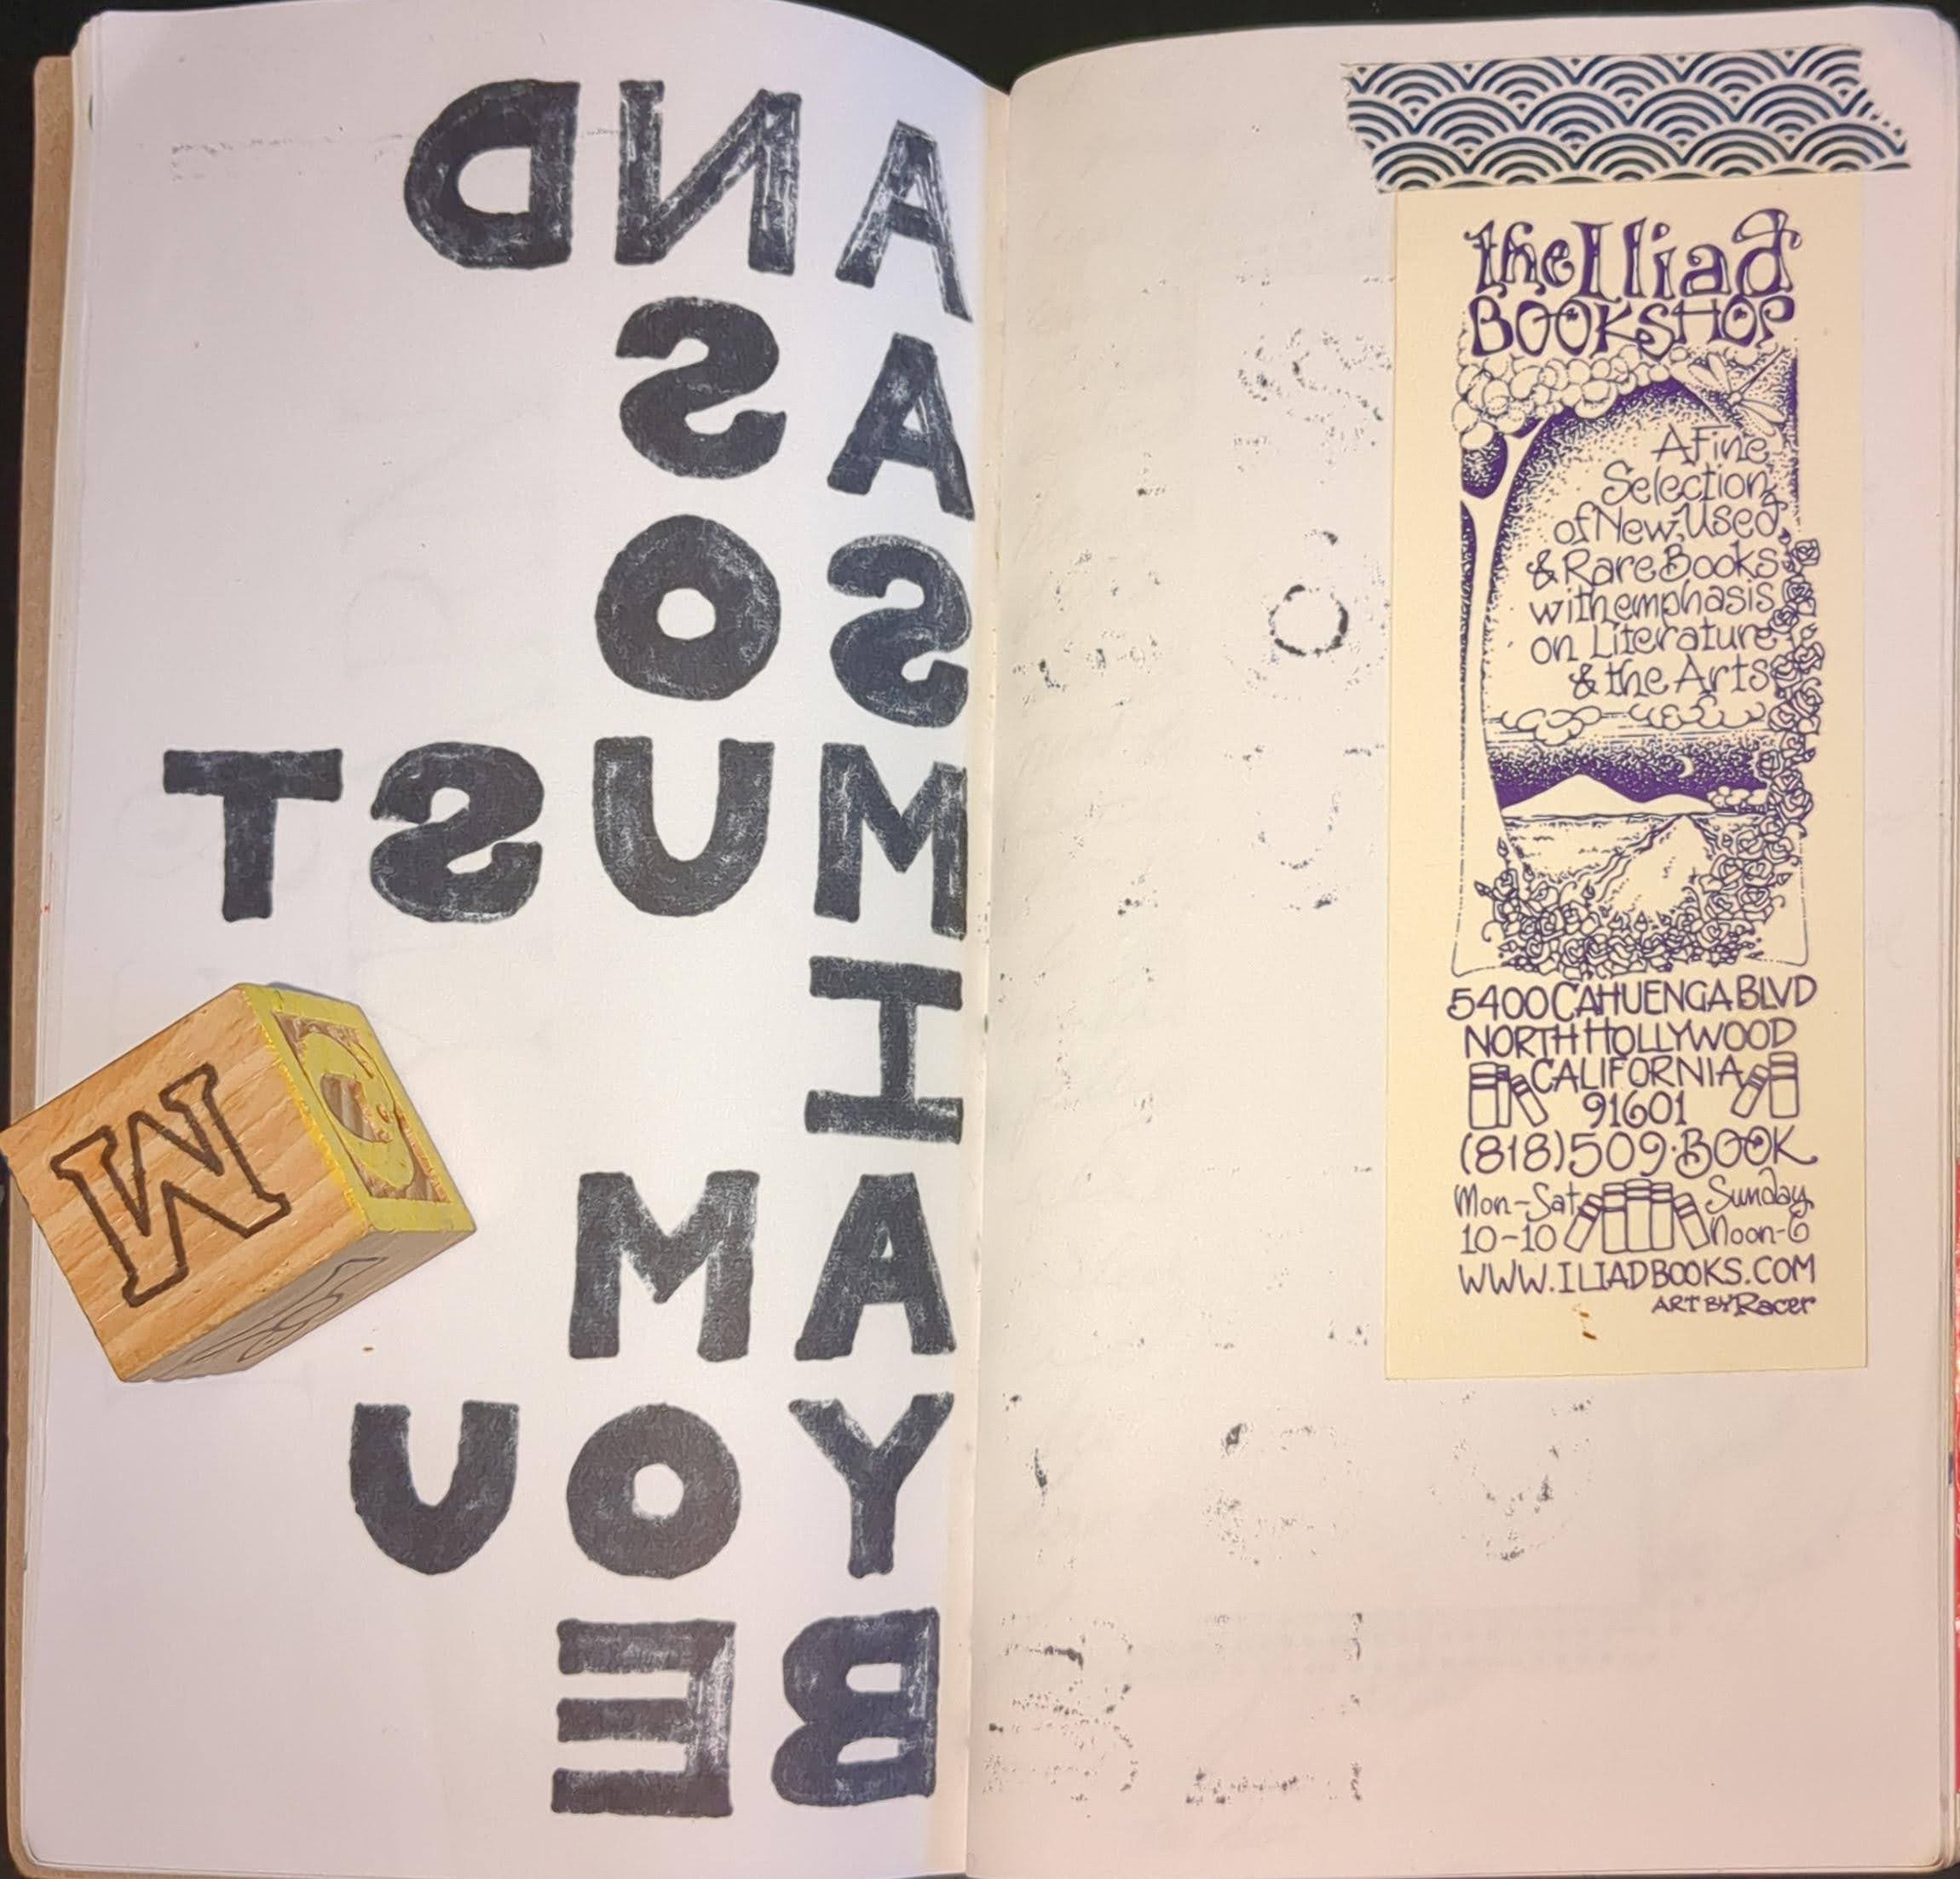 AND
AS
SO
MUST
I
AM
YOU
BE
M
the Iliad
BOOKSHOP
A Fine
Selection
of New, Used,
& Rare Books
with emphasis
on Literature
& the Arts
5400 CAHUENGA BLVD
NORTH HOLLYWOOD
CALIFORNIA
91601
(818) 509·BOOK
Mon-Sat
10-10
Sunday
Noon-6
WWW.ILIADBOOKS.COM
ART BY Racer